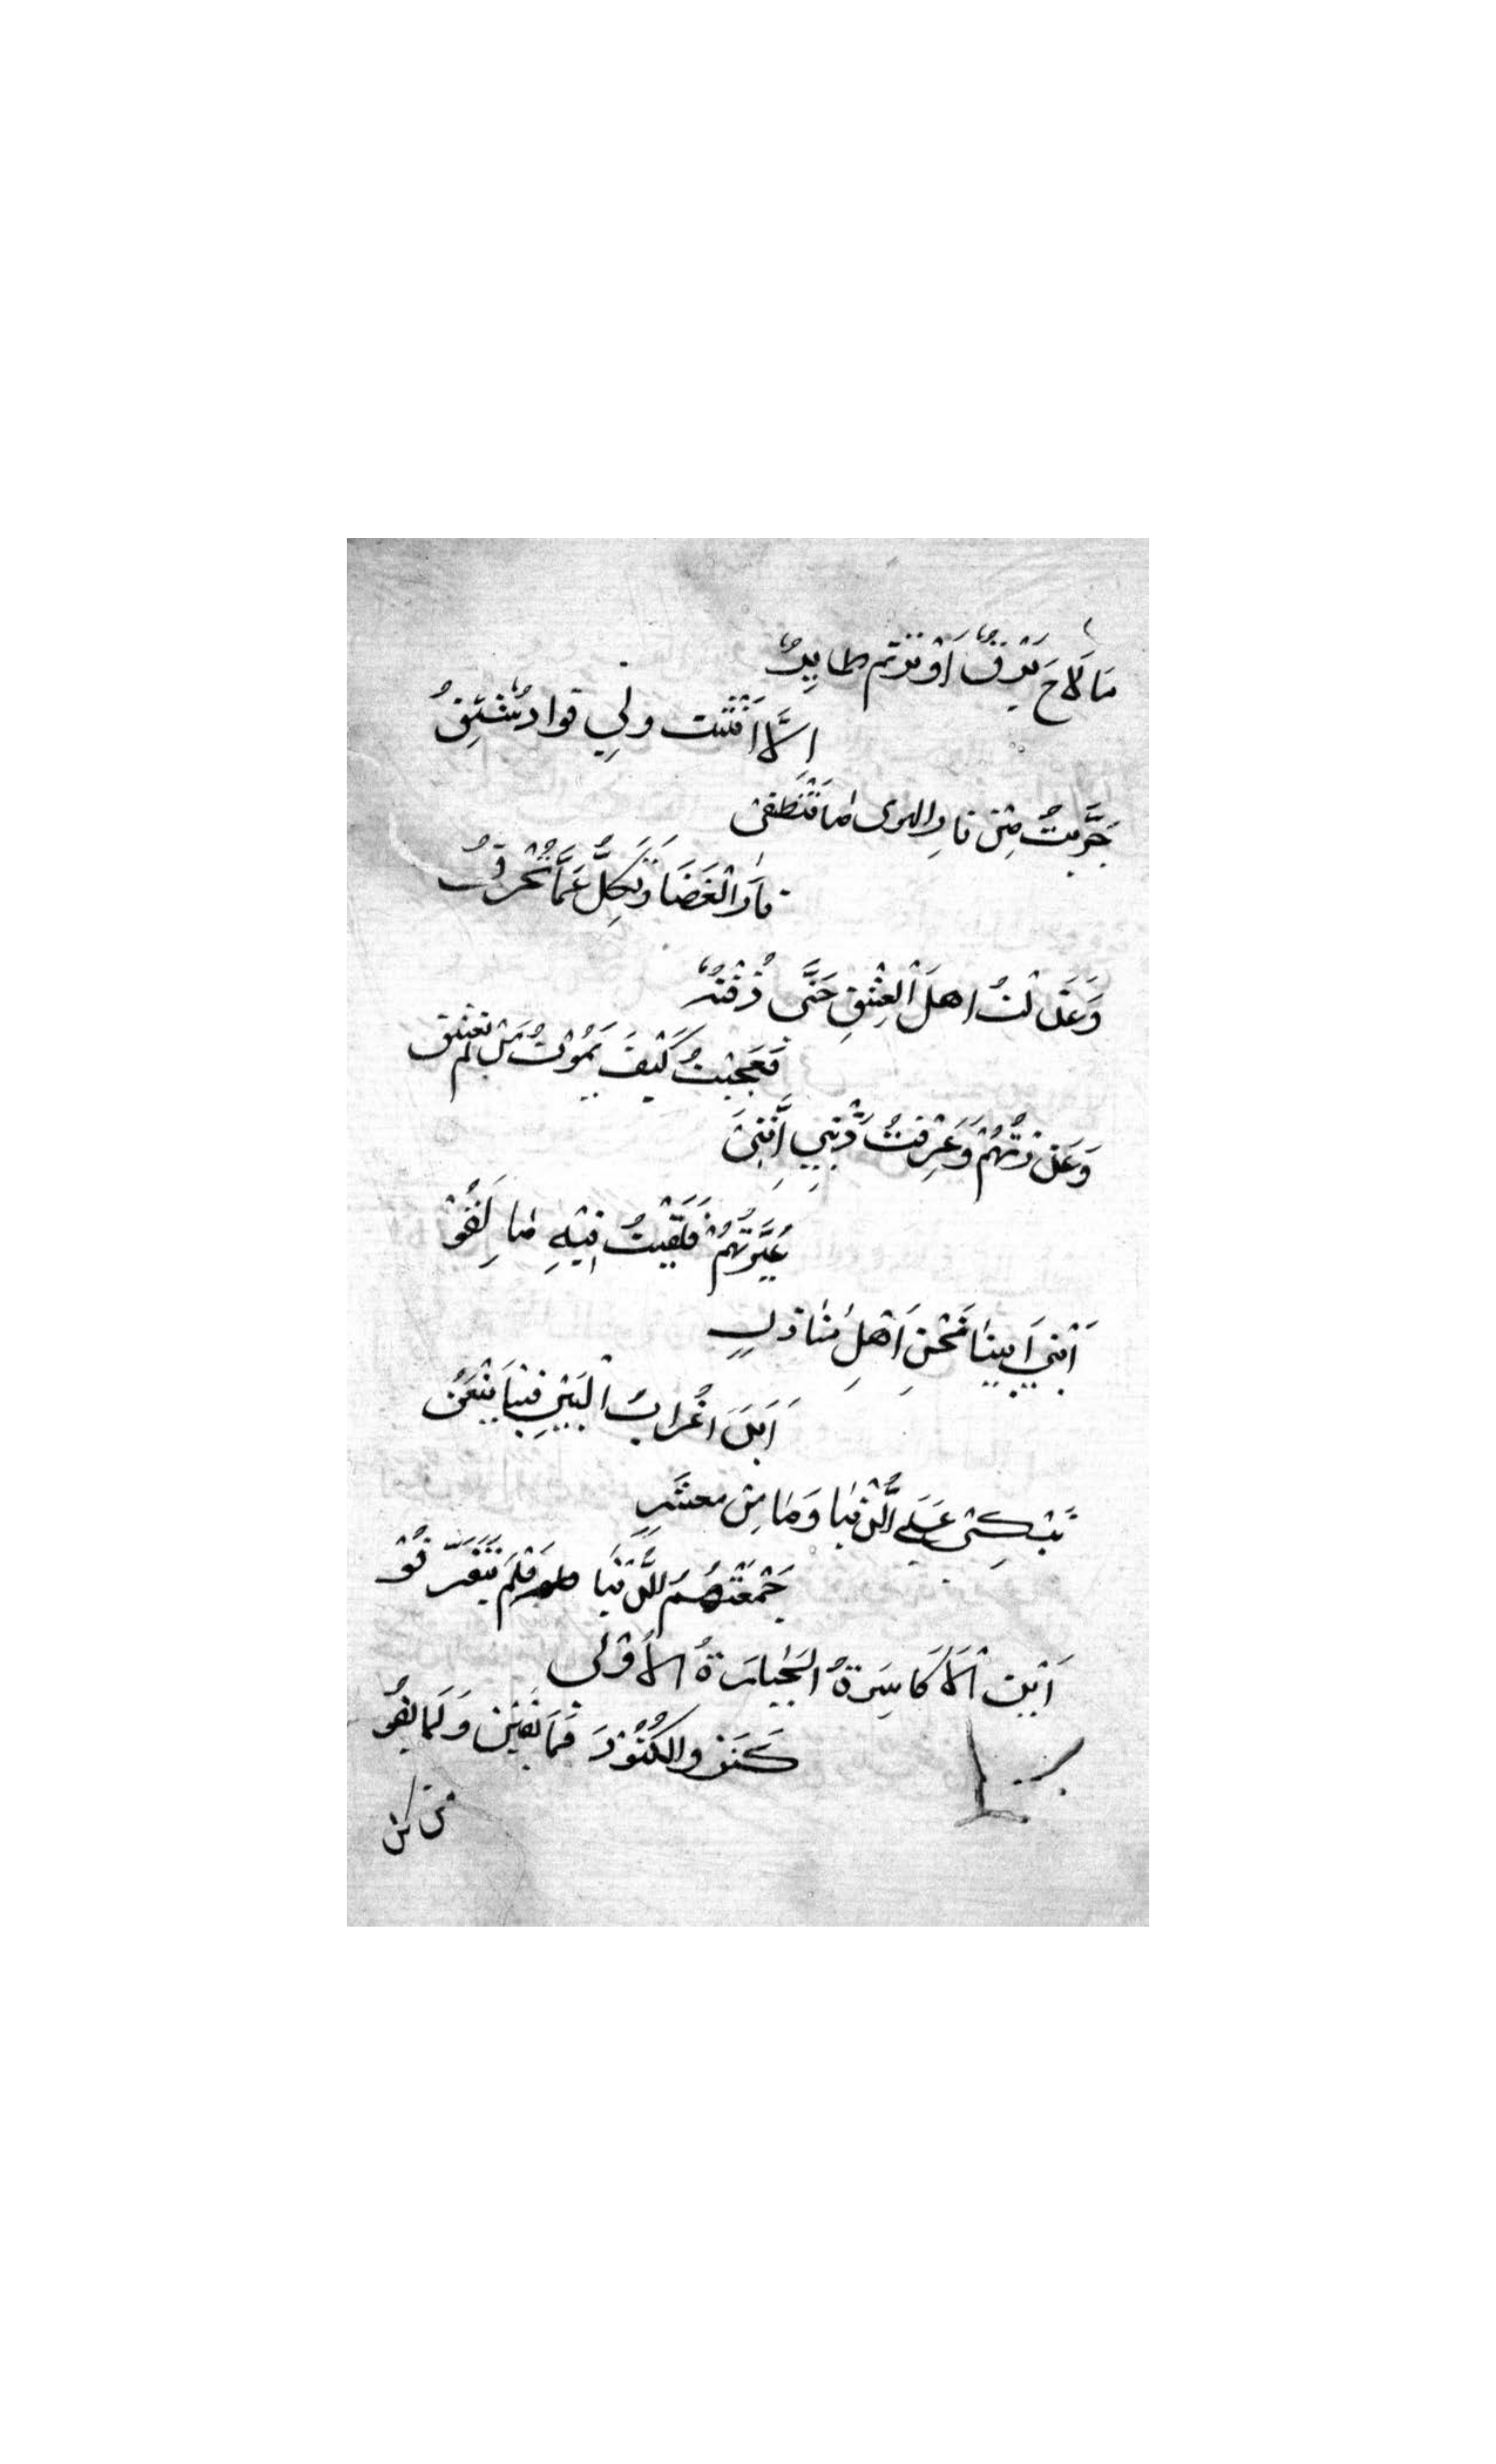 مَا لَاحَ بَرْقٌ اَوْ تَرَنَّم طايِرٌ
اِلَّا اَنْثَنَيْت ولِي فوادٌ شَيِّقُ
جَرَّبْتُ مِنْ نارِ الهوى مَا تَنْطَفى
نَارُ الْغَضَا وَتَكِلُّ عَمَّا تُحْرِقُ
وَعَذَلْتُ اهلَ الْعِشْقِ حَتَّى ذُقْتُهُ
فَعَجِبْتُ كَيْفَ يَمُوْتُ مَنْ لم يعْشق
وَعَذَرْتُهُمْ وَعَرِفْتُ ذَنْبِي اَنَّنِىْ
عَيَّرْتُهُمْ فَلَقِيْتُ فِيْهِ مَا لَقُوْ
اَبَنِي اَبِينَا نَحْنُ اَهْلِ مَنازلٍ
اَبَدَ اغُرابُ الْبَيْنِ فِيْنَا يَنْعَقُ
نَبْكِىْ عَلَى الدُّنْيا وَمَا مِنْ معشَرٍ
جَمَعَتْهُمُ الدُّنْيَا فَلَمْ يَتَفَرَّقُوْ
اَيْنَ الْاَكَاسِرَةُ الجَبَابِرَةُ الاُوْلى
كَنَزوالكُنُوْزَ فَمَا بَقِيْنَ وَلَا بَقُو
من كل